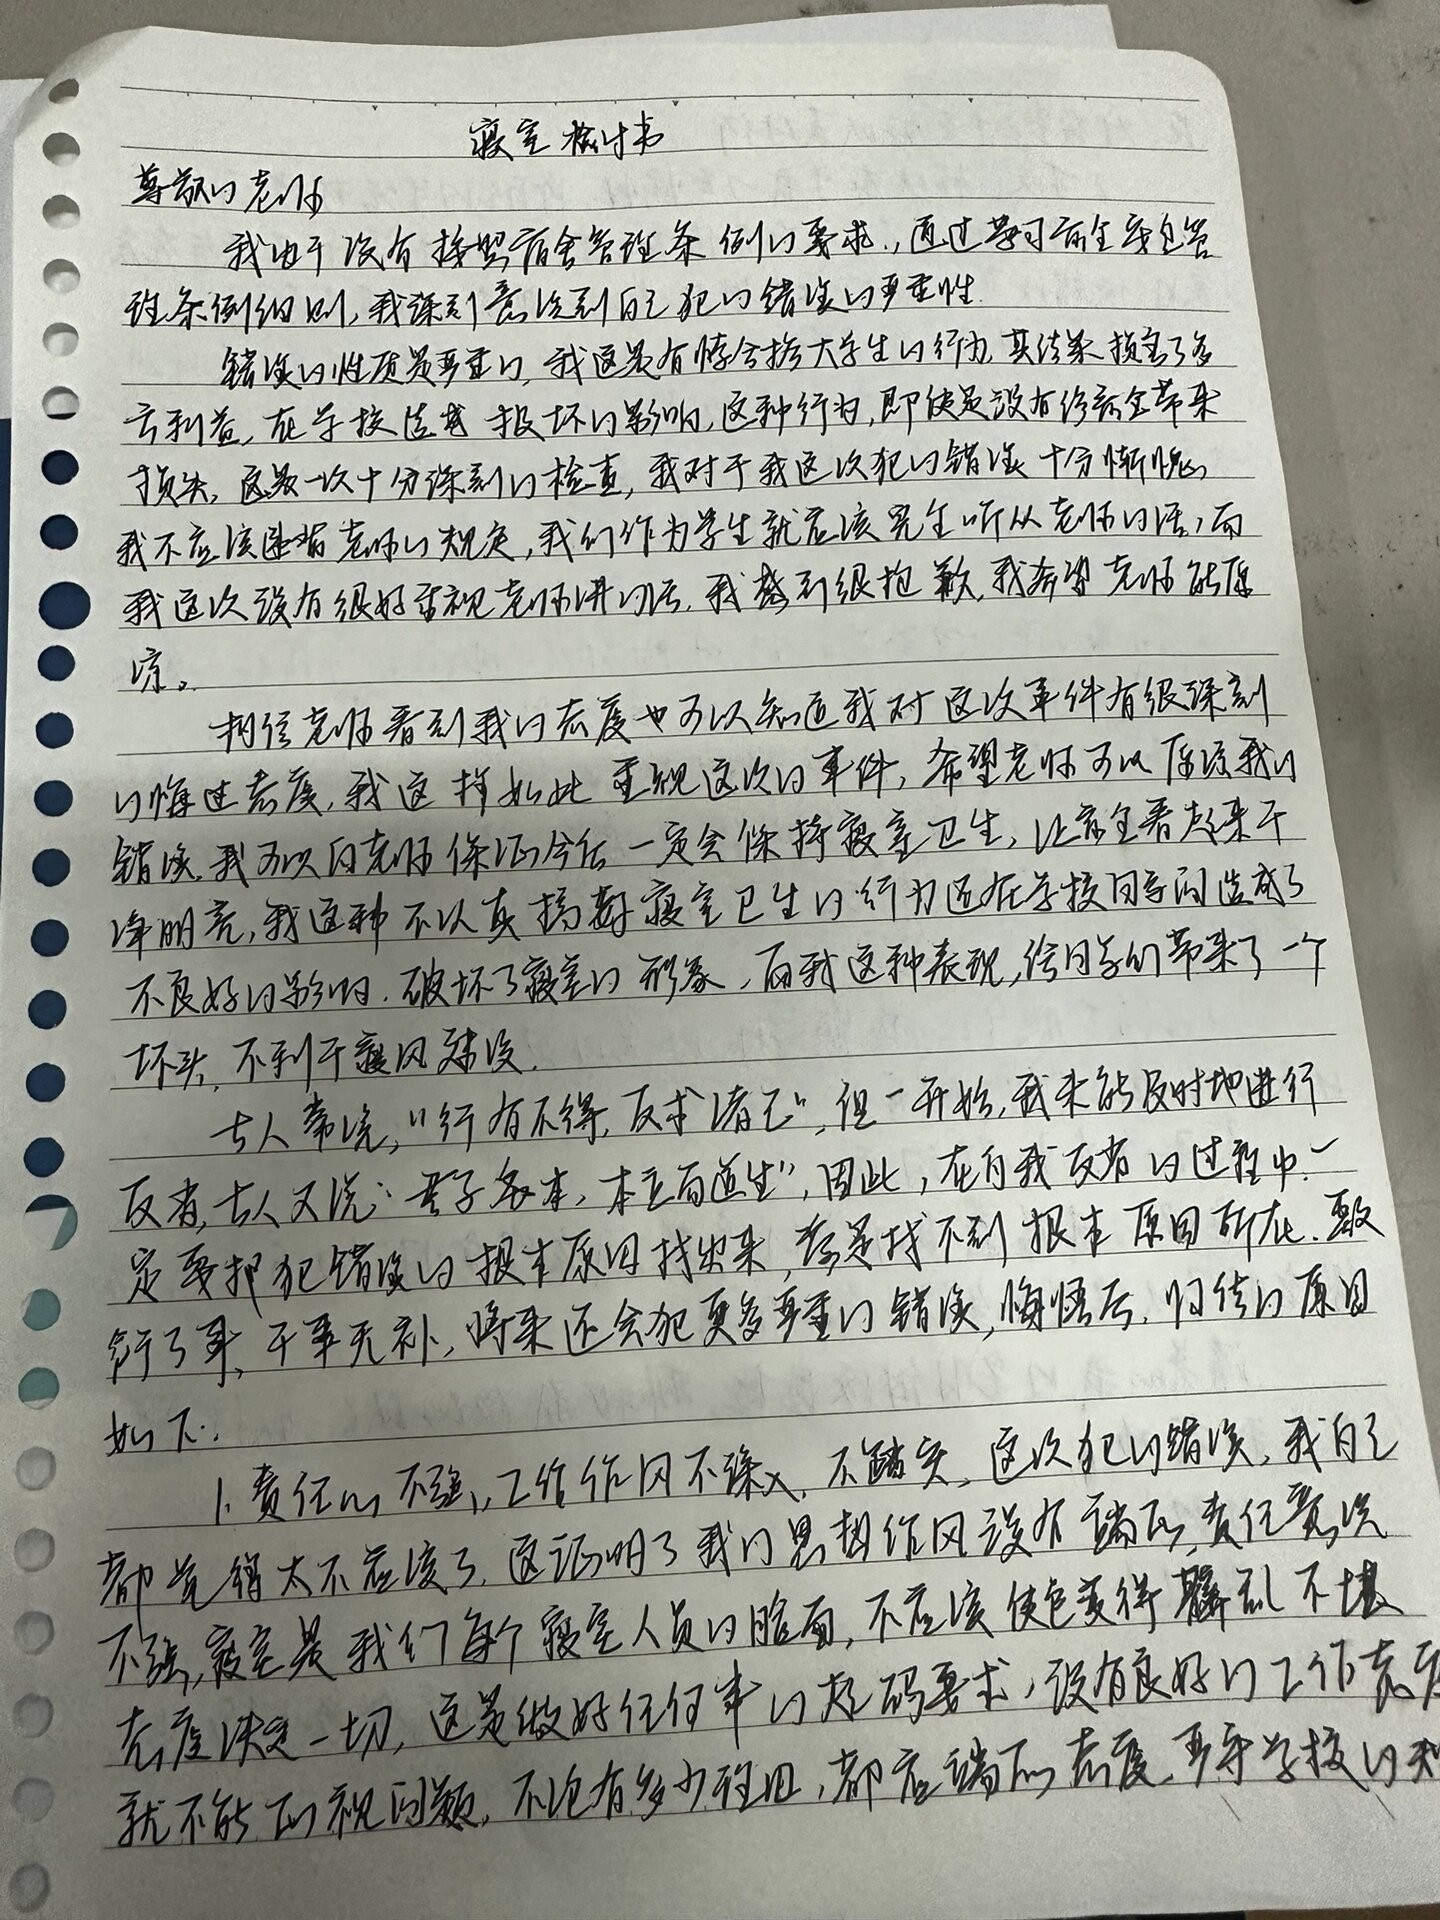 寝室检讨书
尊敬的老师
我由于没有按照宿舍管理条例的要求，通过学习宿舍寝室管
理条例细则，我深刻意识到自己犯的错误的严重性.
错误的性质是严重的，我这是有悖合格大学生的行为，其结果损害了多
方利益，在学校造成极坏的影响，这种行为，即使是没有给宿舍带来
损失，这是一次十分深刻的检查，我对于我这次犯的错误十分惭愧，
我不应该违背老师的规定，我们作为学生就应该完全听从老师的话，而
我这次没有很好重视老师讲的话，我感到很抱歉，我希望老师能原
谅。
相信老师看到我的态度也可以知道我对这次事件有很深刻
的悔过态度，我这样如此重视这次的事件，希望老师可以原谅我的
错误，我可以向老师保证今后一定会保持寝室卫生，让宿舍看起来干
净明亮，我这种不认真搞好寝室卫生的行为还在学校同学间造成了
不良好的影响，破坏了寝室的形象，而我这种表现，给同学们带来了一个
坏头，不利于寝风建设.
古人常说，“行有不得，反求诸己”，但一开始，我未能及时地进行
反省，古人又说：君子务本，本立而道生”，因此，在自我反省的过程中，一
定要把犯错误的根本原因找出来，若是找不到根本原因所在，敷
衍了事，于事无补，将来还会犯更多严重的错误，悔悟后，归结的原因
如下：
1. 责任心不强，工作作风不深入，不踏实，这次犯的错误，我自己
都觉得太不应该了，这证明了我的思想作风没有端正，责任意识
不强，寝室是我们每个寝室人员的脸面，不应该使它变得脏乱不堪
态度决定一切，这是做好任何事的起码要求，没有良好的工作态度
就不能正视问题，不论有多少理由，都应端正态度，严守学校的